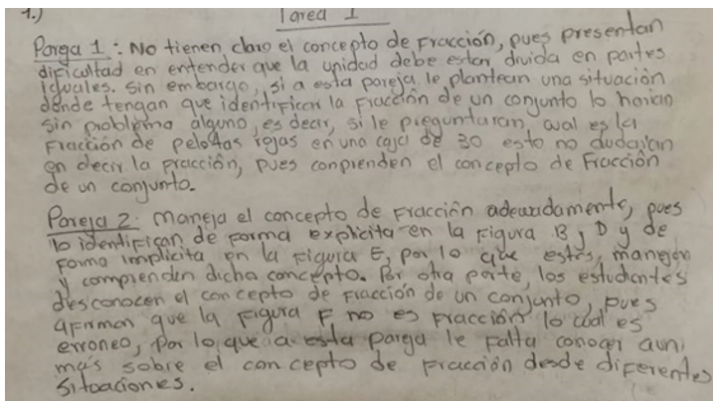 1.)
Tarea 1
Pareja 1: No tienen claro el concepto de Fracción, pues presentan
dificultad en entender que la unidad debe estar divida en partes
iguales. Sin embargo, si a esta pareja le plantean una situación
donde tengan que identificar la fracción de un conjunto lo harian
sin problema alguno, es decir, si le preguntaran, cual es la
Fracción de pelotas rojas en una caja de 30 esto no dudarian
en decir la fracción, pues conprenden el concepto de Fracción
de un conjunto.
Pareja 2: maneja el concepto de Fracción adecuadamente, pues
lo identifican de forma explicita en la figura B y D y de
forma implicita en la figura E, por lo que estos, manejan
y comprenden dicha concepto. Por otra parte, los estudiantes
desconocen el concepto de Fracción de un conjunto, pues
afirman que la figura F no es Fracción lo cual es
erroneo, por lo que a esta pareja le falta conocer aun
más sobre el concepto de Fracción desde diferentes
situaciones.